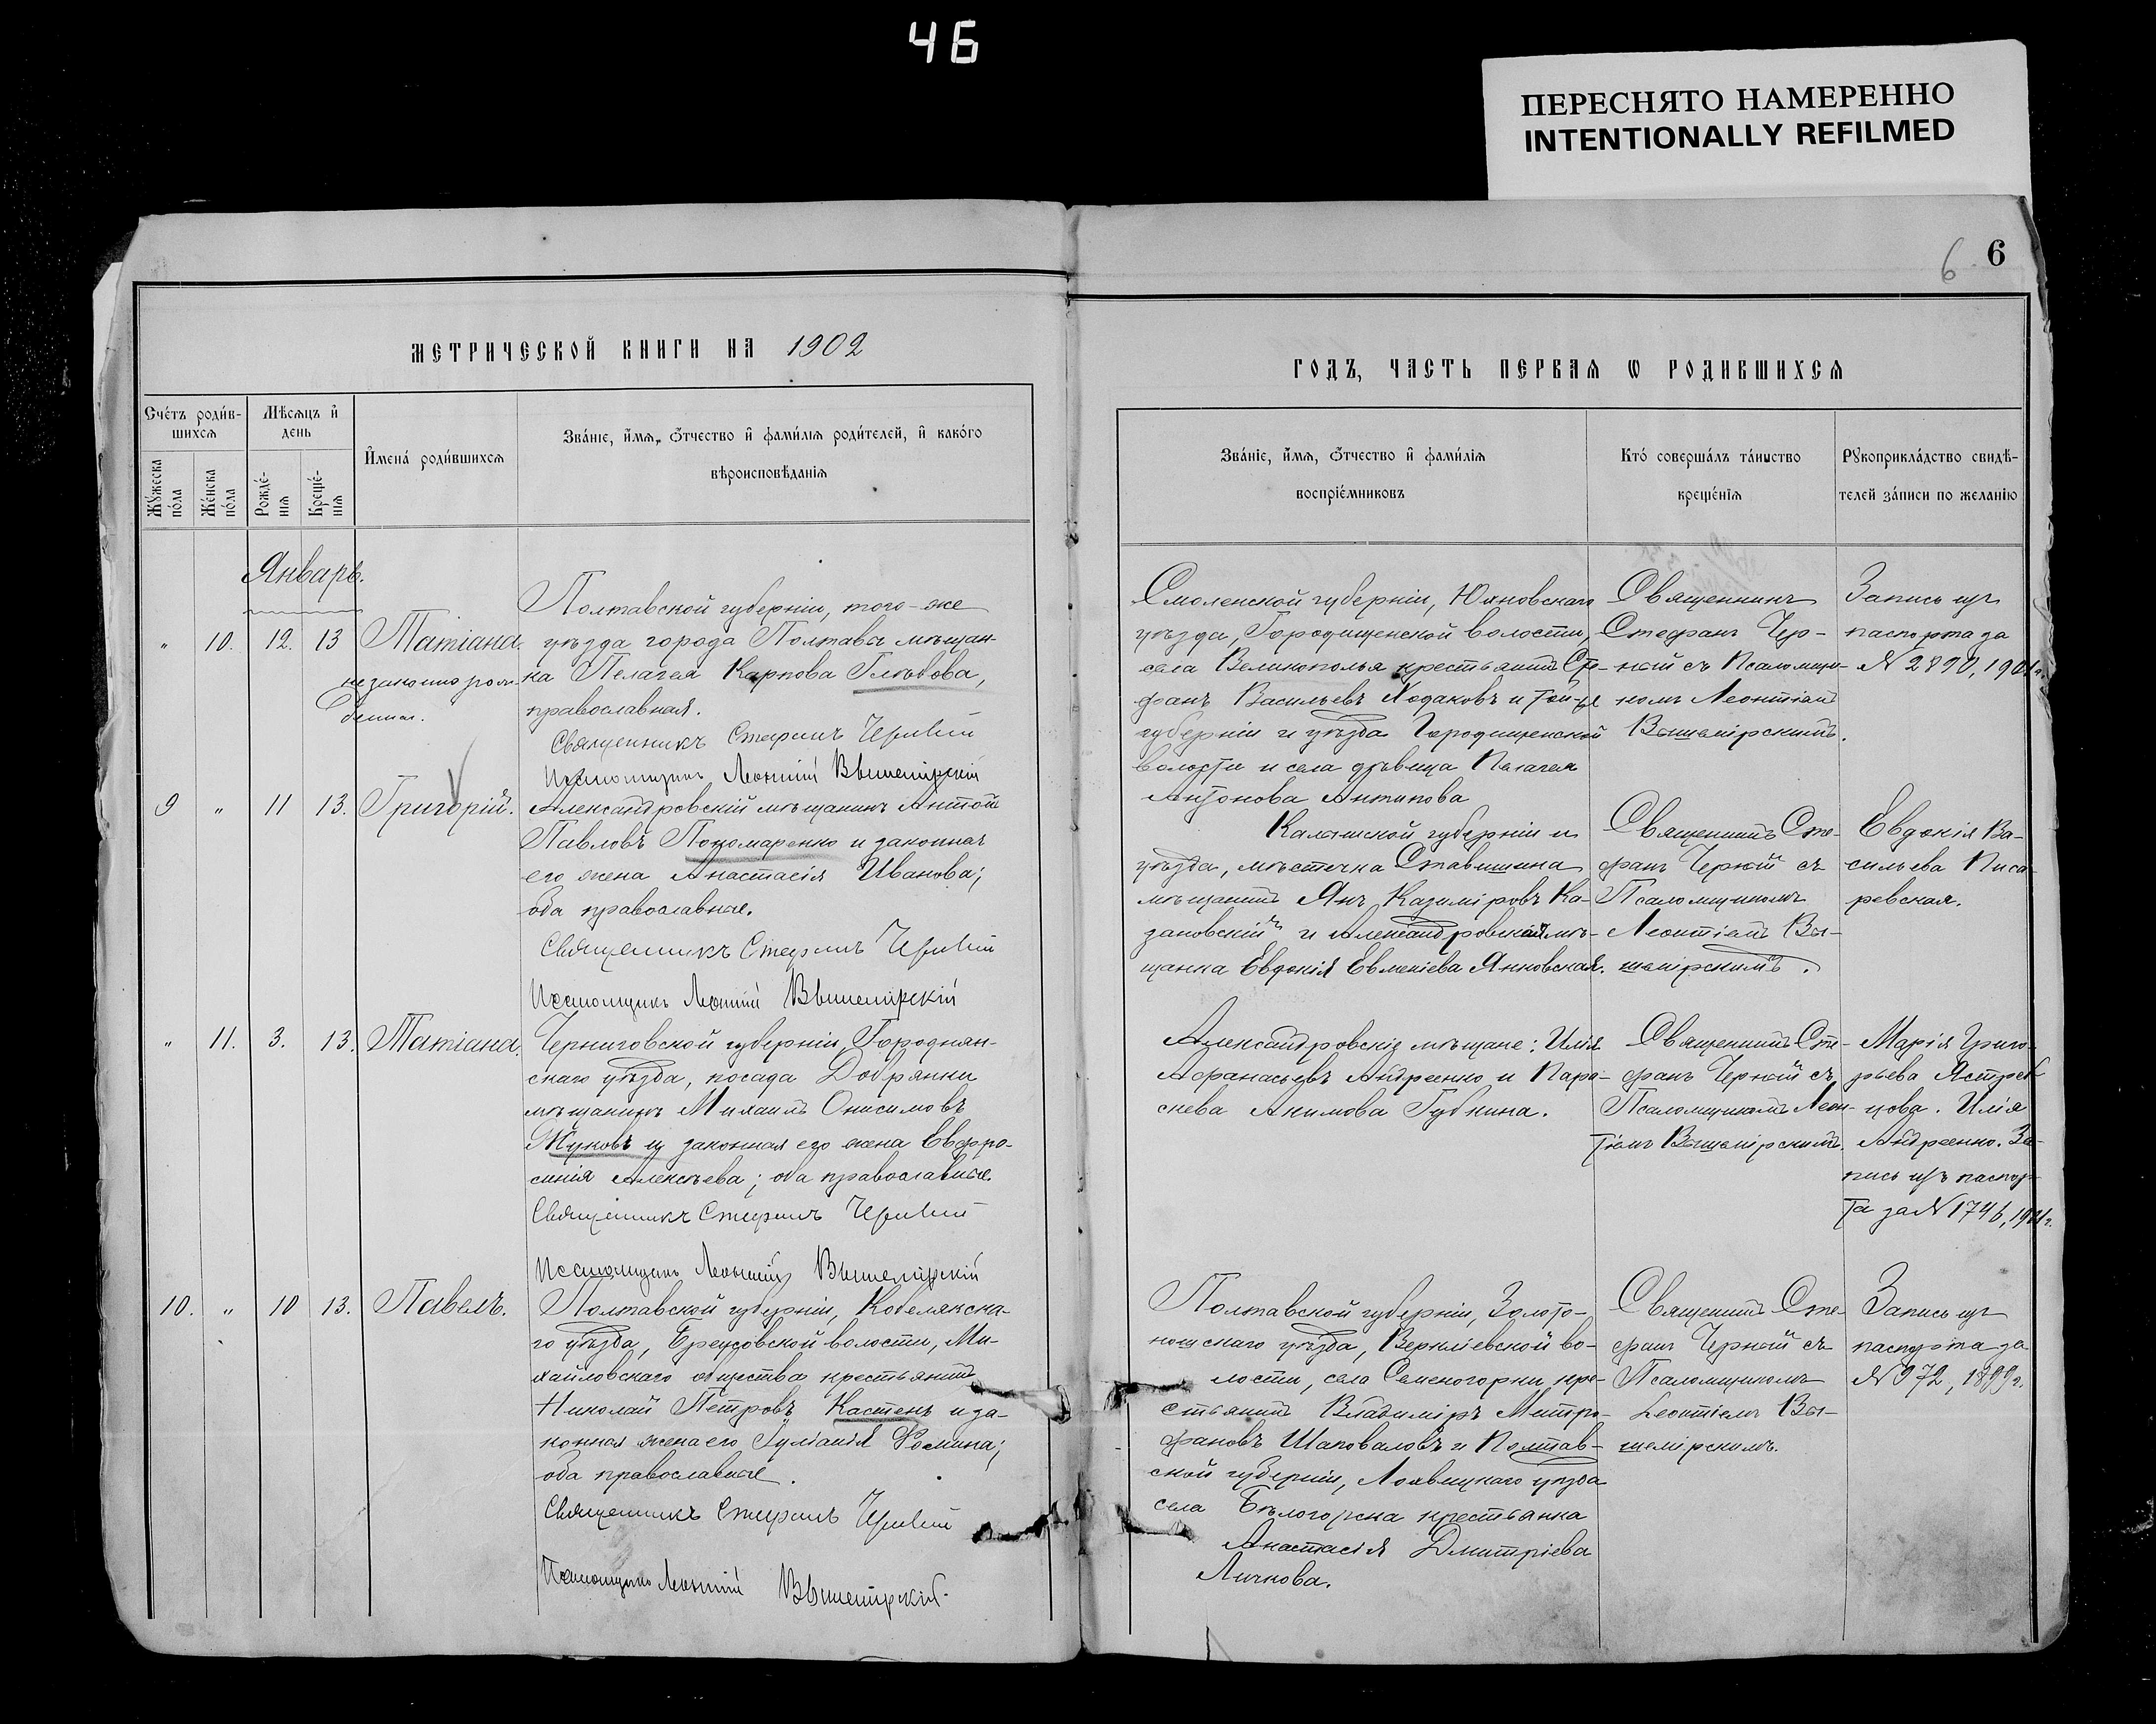 46
ПЕРЕСНЯТО НАМЕРЕННО
INTENTIONALLY REFILMED
6 6
МЕТРИЧЕСКОЙ КНИГИ НА 1902
ГОДЪ, ЧАСТЬ ПЕРВАЯ Ѡ РОДИВШИХСЯ
Счетъ родив-
шихся
Мѣсяцъ и
день
Мужеска
пола
Женска
пола
Рожде-
нія
Креще-
нія
Имена родившихся
Званіе, имя, отчество и фамилія родителей, и какого
вѣроисповѣданія
Званіе, имя, отчество и фамилія
воспріемниковъ
Кто совершалъ таинство
крещенія
Рукоприкладство свидѣ-
телей записи по желанію
Январь.
" 10. 12. 13 Татіана.
незаконно рож-
денная.
Полтавской губерніи, того-же
уѣзда города Полтавы мѣщан-
ка Пелагея Карпова Глѣбова,
православная.
Священникъ Стефанъ Черный
Псаломщикъ Леонтій Вышемірскій
Смоленской губерніи, Юхновскаго
уѣзда, Городищенской волости,
села Великополья крестьянинъ Сте-
фанъ Васильевъ Ходаковъ и той-же
губерніи и уѣзда Городищенской
волости и села дѣвица Пелагея
Антонова Антипова
Священникъ
Стефанъ Чер-
ный съ Псаломщи-
комъ Леонтіемъ
Вышемірскимъ.
Запись изъ
паспорта за
№ 2890, 1901 г.
9 " 11 13. Григорій.
Александровскій мѣщанинъ Антонъ
Павловъ Пономаренко и законная
его жена Анастасія Иванова;
оба православные.
Священникъ Стефанъ Черный
Псаломщикъ Леонтій Вышемірскій
Калишской губерніи и
уѣзда, мѣстечка Ставишина
мѣщанинъ Янъ Казиміровъ Ка-
зановскій и Александровская мѣ-
щанка Евдокія Евменіева Янковская.
Священникъ Сте-
фанъ Черный съ
Псаломщикомъ
Леонтіемъ Вы-
шемірскимъ.
Евдокія Ва-
сильева Писа-
ревская.
" 11. 3. 13. Татіана.
Черниговской губерніи, Городнян-
скаго уѣзда, посада Добрянки
мѣщанинъ Михаилъ Онисимовъ
Жуковъ и законная его жена Евфро-
синія Алексѣева; оба православные.
Священникъ Стефанъ Черный
Псаломщикъ Леонтій Вышемірскій
Александровскіе мѣщане: Илія
Афанасьевъ Андреенко и Пара-
скева Акимова Губкина.
Священникъ Сте-
фанъ Черный съ
Псаломщикомъ Леон-
тіемъ Вышемірскимъ.
Марія Григо-
рьева Ястреб-
цова. Илія
Андреенко. За-
пись изъ паспор-
та за № 1746, 1901 г.
10. " 10 13. Павелъ.
Полтавской губерніи, Кобелякска-
го уѣзда, Бреусовской волости, Ми-
хайловскаго общества крестьянинъ
Николай Петровъ Кастенъ и за-
конная жена его Іуліанія Фомина;
оба православные.
Священникъ Стефанъ Черный
Псаломщикъ Леонтій Вышемірскій.
Полтавской губерніи, Золото-
ношскаго уѣзда, Вереміевской во-
лости, села Семеногорки кре-
стьянинъ Владиміръ Митро-
фановъ Шаповаловъ и Полтав-
ской губерніи, Лохвицкаго уѣзда
села Бѣлогорска крестьянка
Анастасія Дмитріева
Личкова.
Священникъ Сте-
фанъ Черный съ
Псаломщикомъ
Леонтіемъ Вы-
шемірскимъ.
Запись изъ
паспорта за
№ 972, 1899 г.